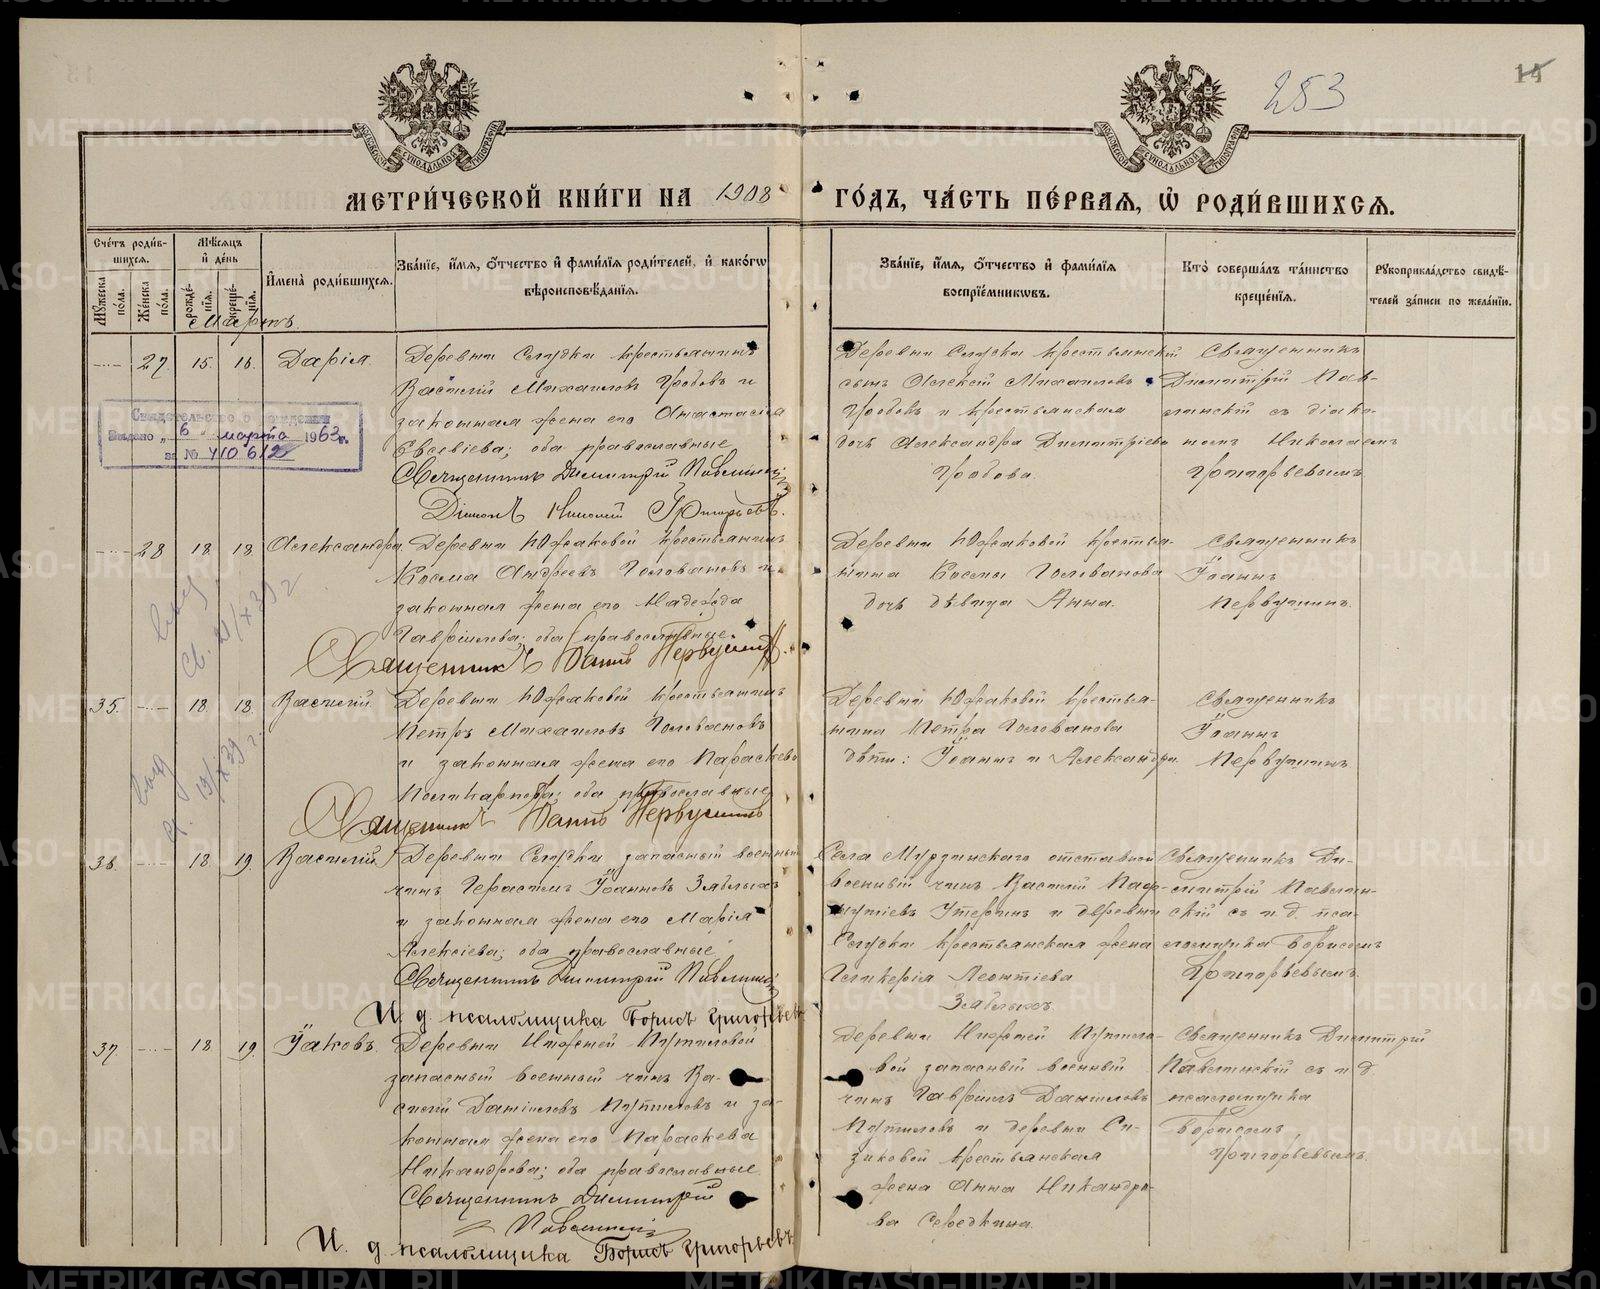 253
14
МЕТРИ́ЧЕСКОЙ КНИ́ГИ НА 1908 ГО́ДЪ, ЧА́СТЬ ПЕ́РВАЯ, Ѡ҆ РОДИ́ВШИХСЯ.
Сче́тъ роди́в-
шихся.
Мꙋ́жеска
по́ла.
Же́нска
по́ла.
Мѣ́сяцъ
и҆ де́нь
рожде́-
нїя.
креще́-
нїя.
И҆мена̀ роди́вшихся.
Зва́нїе, и҆́мя, ѻ҆́тчество и҆ фами́лїя роди́телей, и҆ како́гѡ
вѣроисповѣ́данїя.
Зва́нїе, и҆́мя, ѻ҆́тчество и҆ фами́лїя
воспрїе́мникѡвъ.
Кто̀ соверша́лъ та́инство
креще́нїя.
Рꙋкоприкла́дство свидѣ́-
телей за́писи по жела́нїю.
Мартъ.
27. 15. 16. Дарія.
Деревни Слудки крестьянинъ
Василій Михаиловъ Гробовъ и
законная жена его Анастасія
Евсевіева; оба православные
Священникъ Димитрій Павлинскій
Діаконъ Николай Григорьевъ.
Деревни Слудки крестьянскій
сынъ Алексій Михаиловъ
Гробовъ и крестьянская
дочь Александра Димитріева
Гробова.
Священникъ
Димитрій Пав-
линскій съ діако-
номъ Николаемъ
Григорьевымъ
Свидетельство о рождении
Выдано „ 6 " марта 1963 г.
за №
28 18 18 Александра.
Деревни Южаковой крестьянинъ
Косма Андреевъ Голованов и
законная жена его Надежда
Гавріилова; оба православные.
Священникъ Іоаннъ Первушинъ.
Деревни Южаковой крестья-
нина Космы Голованова
дочь дѣвица Анна.
Священникъ
Іоаннъ
Первушинъ.
35. 18. 18. Василій.
Деревни Южаковой крестьянинъ
Петръ Михаиловъ Головановъ
и законная жена его Параскева
Поликарпова; оба православные.
Священникъ Іоаннъ Первушинъ
Деревни Южаковой крестья-
нина Петра Голованова
дѣти: Іоаннъ и Александра.
Священникъ
Іоаннъ
Первушинъ
36. 18 19. Василій.
Деревни Слудки запасный военный
чинъ Герасимъ Іоанновъ Зяблыхъ
и законная жена его Марія
Алексіева; оба православные
Священникъ Димитрій Павлинскій
И. д. псаломщика Борисъ Григорьевъ
Села Мурзинскаго отставной
военный чинъ Василій Паф-
нутіевъ Утеринъ и деревни
Слудки крестьянская жена
Гликерія Леонтіева
Зяблыхъ.
Священникъ Ди-
митрій Павлин-
скій съ и. д. пса-
ломщика Борисомъ
Григорьевымъ.
37. 18. 19. Іаковъ.
Деревни Нижней Путиловой
запасный военный чинъ Ва-
силій Даніиловъ Путиловъ и за-
конная жена его Параскева
Никандрова; оба православные
Священникъ Димитрій
Павлинскій
И. д. псаломщика Борисъ Григорьевъ
Деревни Нижней Путило-
вой запасный военный
чинъ Гавріилъ Даниловъ
Путиловъ и деревни Си-
зиковой крестьянская
жена Анна Никандро-
ва Середкина.
Священникъ Димитрій
Павлинскій съ и. д.
псаломщика
Борисомъ
Григорьевымъ.